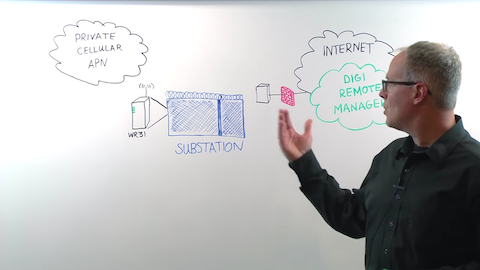 PRIVATE
CELLULAR
APN
INTERNET
DIGI
REMOTE
MANAGER
WR31
SUBSTATION